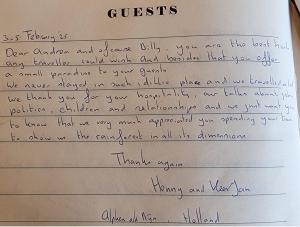 GUESTS
3-5 February 25
Dear Andrea and ofcourse Billy, you are the best host
any traveller could wish And besides that you offer
a small paradise to your guests
We never stayed in such idillic place and we travelled a lot
we thank you for your hospitality, our talks about
politics, children and relationships and we just want you
to know that we very much appreciated you spending your time
to show us the rainforest in all its dimensions.
Thanks again
Henny and KeesJan
Alphen a/d Rijn, Holland